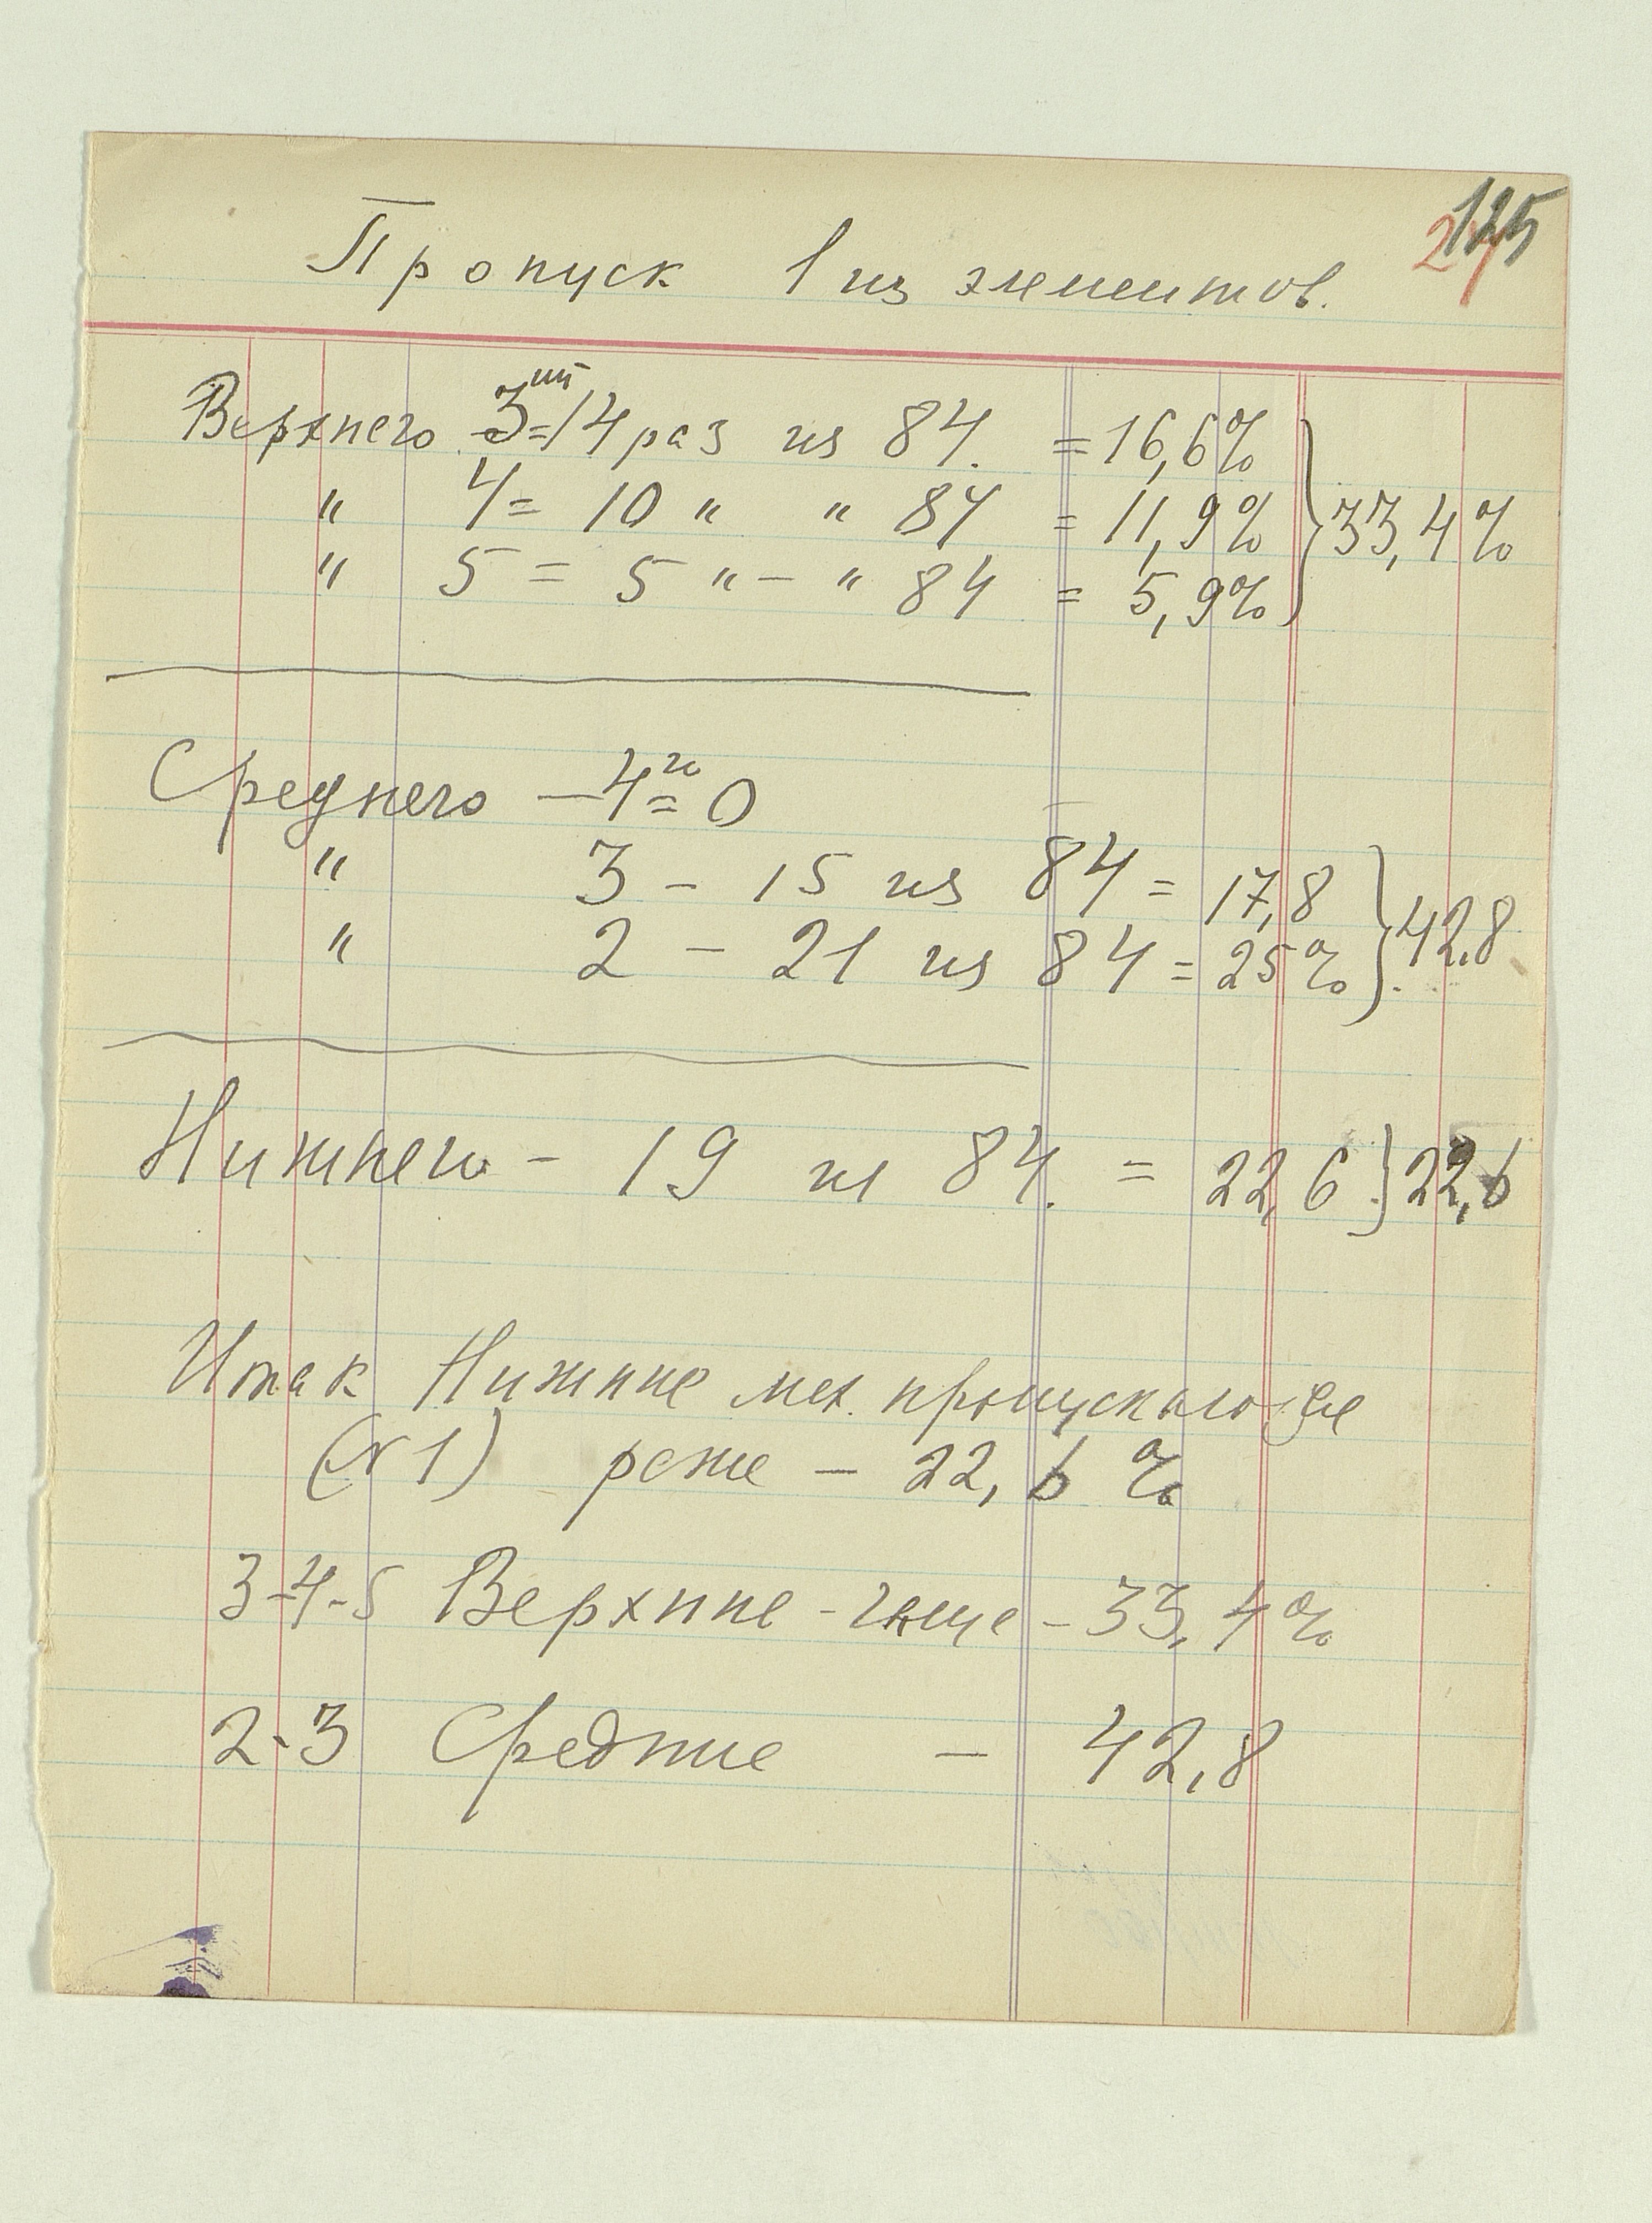 125
Пропуск 1 из элементов.
Верхнего 3 = 14 раз из 84. = 16,6%
" 4 = 10 " " 84 = 11,9% } 33,4%
" 5 = 5 " — " 84 = 5,9%
Среднего — 4го = 0
" 3 — 15 из 84 = 17,8
" 2 — 21 из 84 = 25% } 42,8
Нижнего — 19 из 84. = 22,6 } 22,6
Итак Нижние мех. пропускаются
(№ 1) реже — 22,6 %
3-4-5 Верхние - чаще - 33,4%
2-3 Средние — 42,8